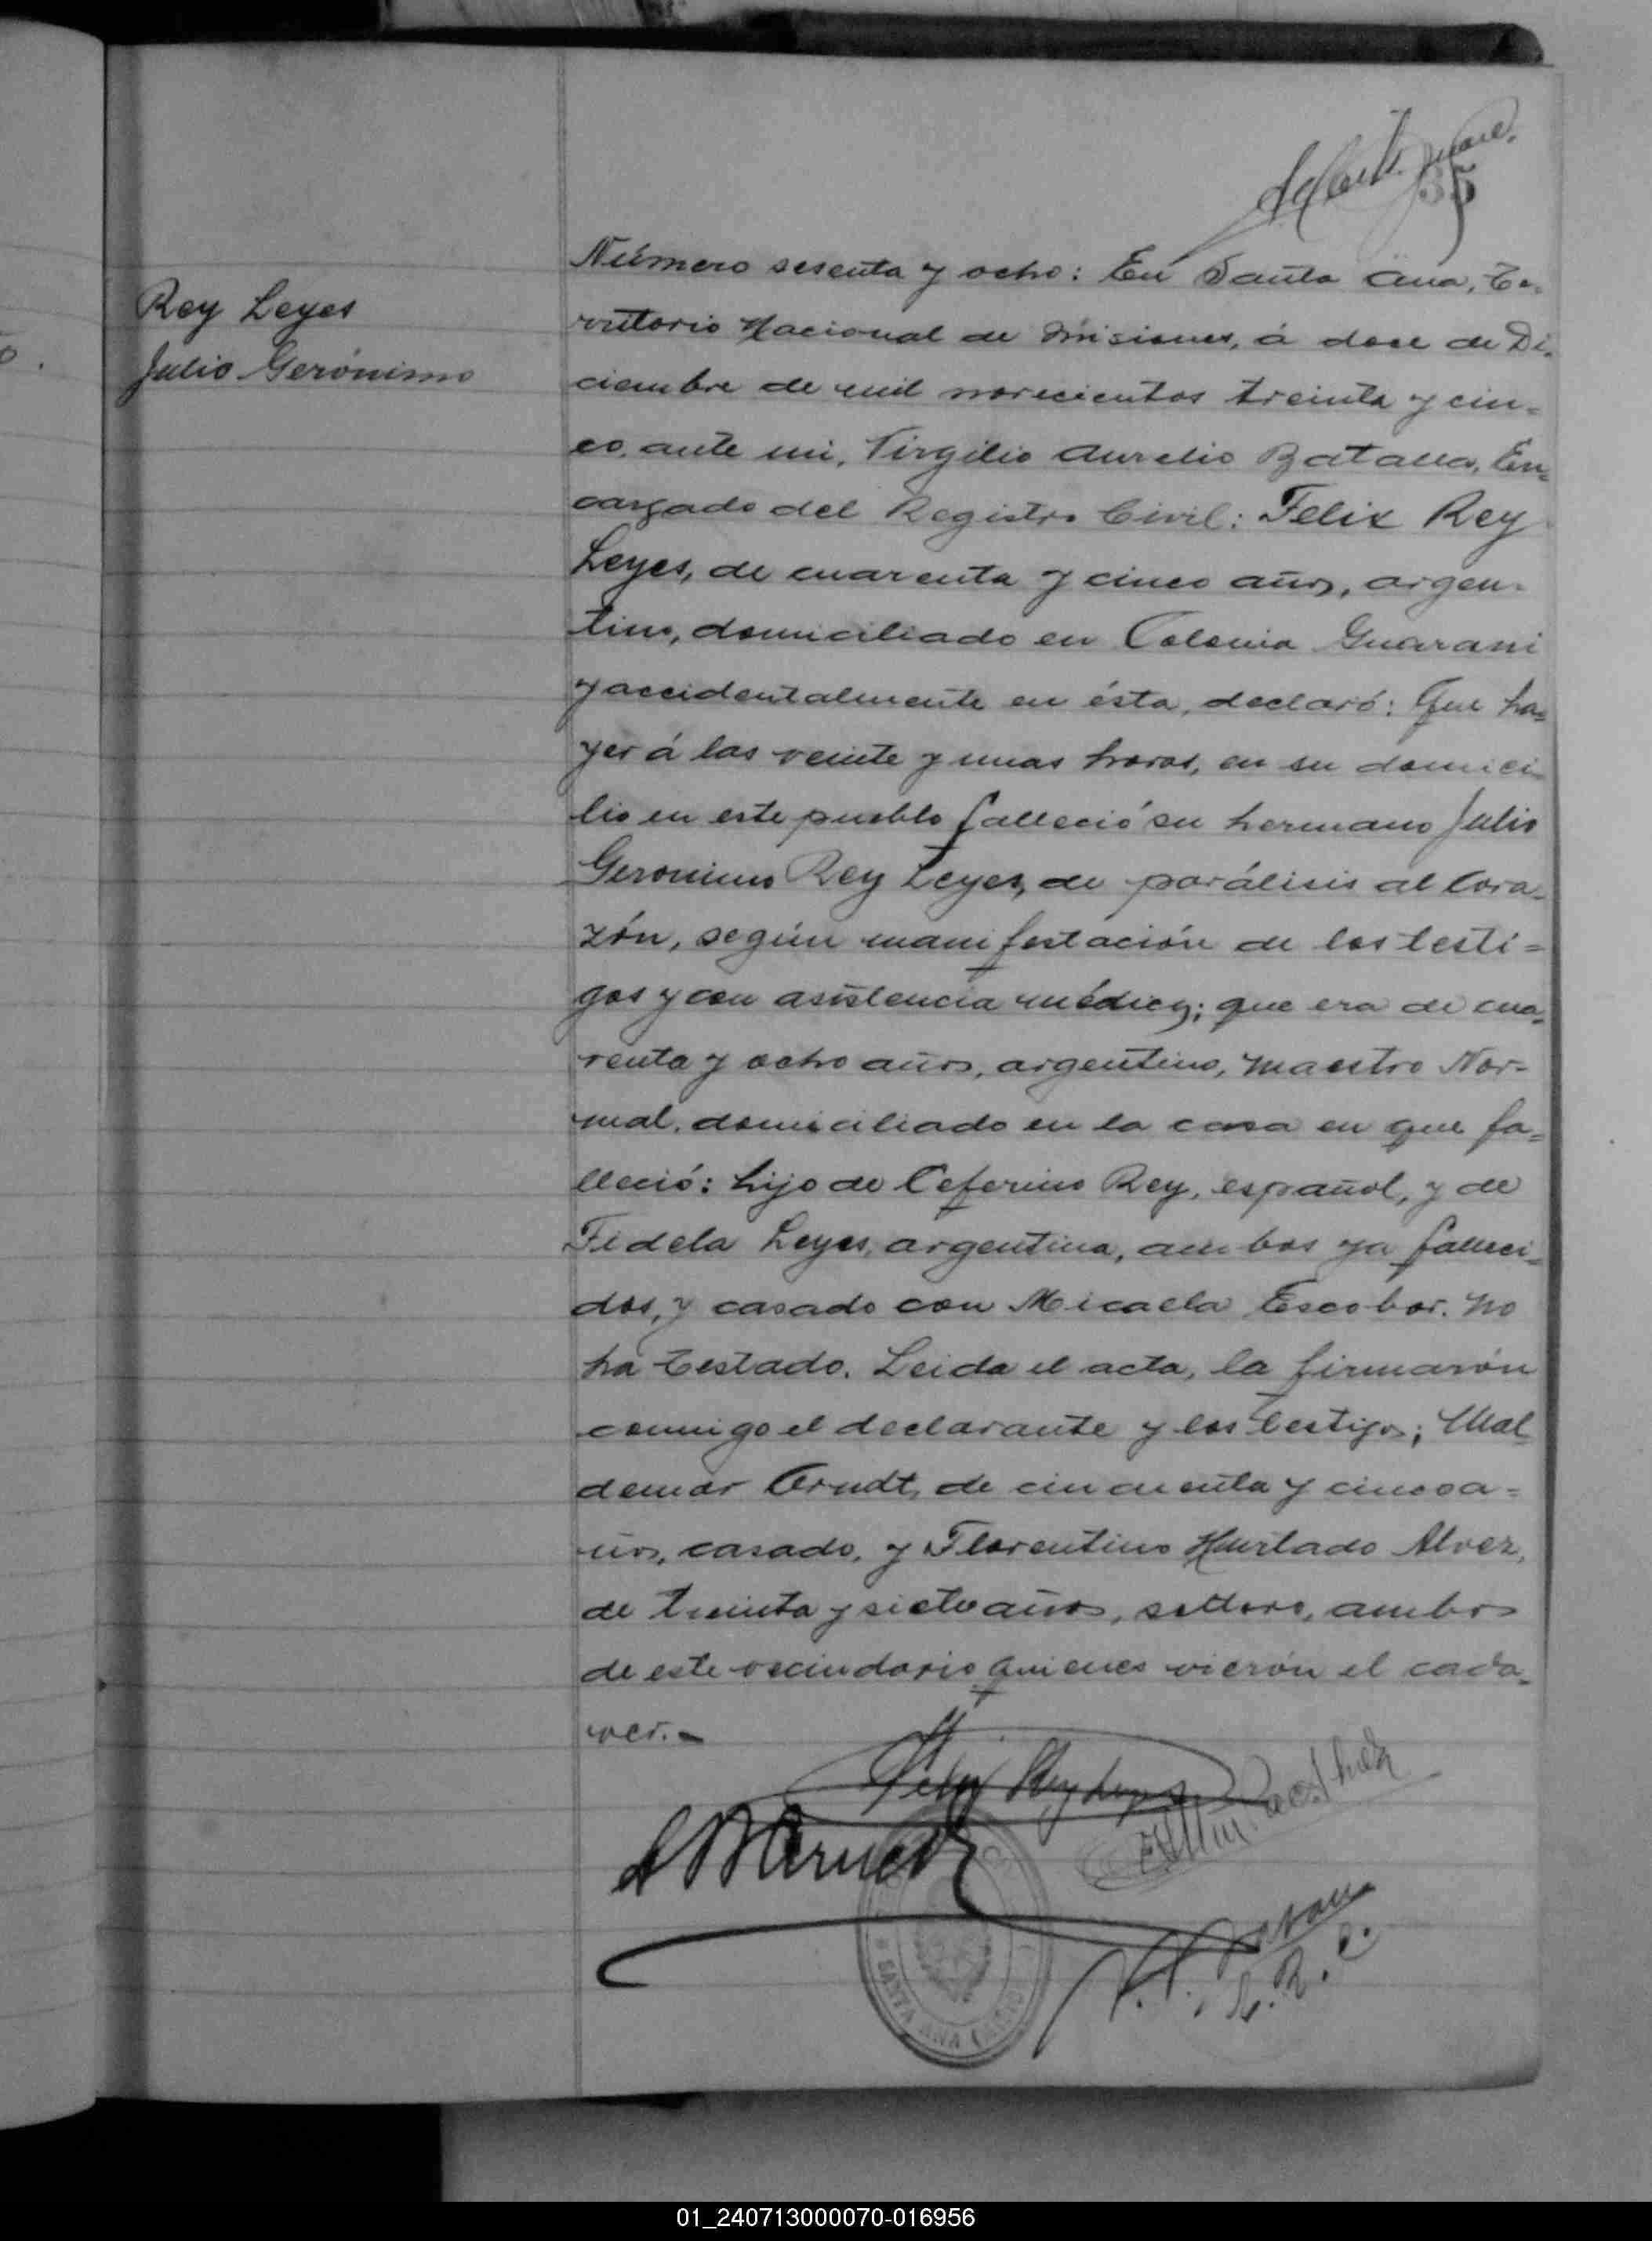 35
Rey Leyes
Julio Gerónimo
Número sesenta y ocho: En Santa Ana, Te-
rritorio Nacional de Misiones, á doce de Di-
ciembre de mil novecientos treinta y cin-
co, ante mi, Virgilio Aurelio Batalla, En-
cargado del Registro Civil: Felix Rey
Leyes, de cuarenta y cinco años, argen-
tino, domiciliado en Colonia Guarani
y accidentalmente en ésta, declaró: Que ha-
yer á las veinte y unas horas, en su domici-
lio en este pueblo falleció su hermano Julio
Geronimo Rey Leyes, de parálisis al Cora-
zón, según manifestación de los testi=
gos y con asistencia médica; que era de cua-
renta y ocho años, argentino, Maestro Nor-
mal, domiciliado en la casa en que fa=
lleció: hijo de Ceferino Rey, español, y de
Fidela Leyes, argentina, ambos ya falleci-
dos, y casado con Micaela Escobar. No
ha testado. Leida el acta, la firmarón
conmigo el declarante y los testigos; Wal-
demar Arndt, de cincuenta y cinco a=
ños, casado, y Florentino Hurtado Alvez,
de treinta y siete años, soltero, ambos
de este vecindario quienes vierón el cadá-
ver.-
Felix Rey Leyes
E. R. C.
SANTA ANA
01_240713000070-016956